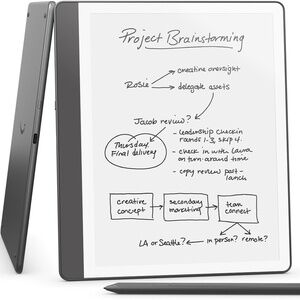 Project Brainstorming
creative oversight
Rosie
delegate assets
Jacob review?
- leadership checkin
rounds 1-3, skip 4.
Thursday,
Final delivery
- check in with Laura
on turn-around time
- copy review post-
launch
creative
concept
secondary
marketing
team
connect
LA or Seattle?
in person?
remote?